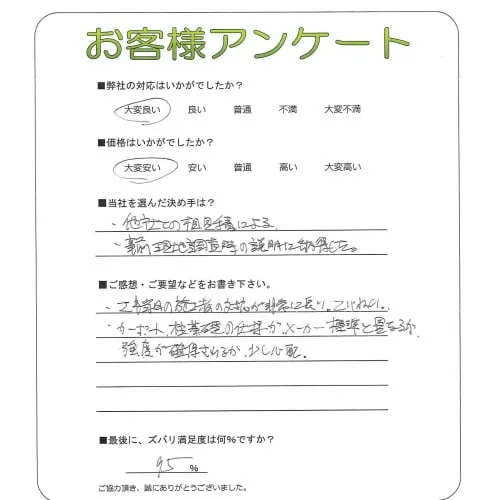 お客様アンケート
■弊社の対応はいかがでしたか?
大変良い 良い 普通 不満 大変不満
■価格はいかがでしたか?
大変安い 安い 普通 高い 大変高い
■当社を選んだ決め手は?
・他社との相見積による
・事前現地調査時の説明に納得した。
■ご感想・ご要望などをお書き下さい。
・工事当日の施工者の対応が非常に良い。ていねい。
・カーポート、柱基礎の仕様が、メーカー標準と異なるが、
強度が確保されるか少し心配。
■最後に、ズバリ満足度は何%ですか?
95 %
ご協力頂き、誠にありがとうございました。